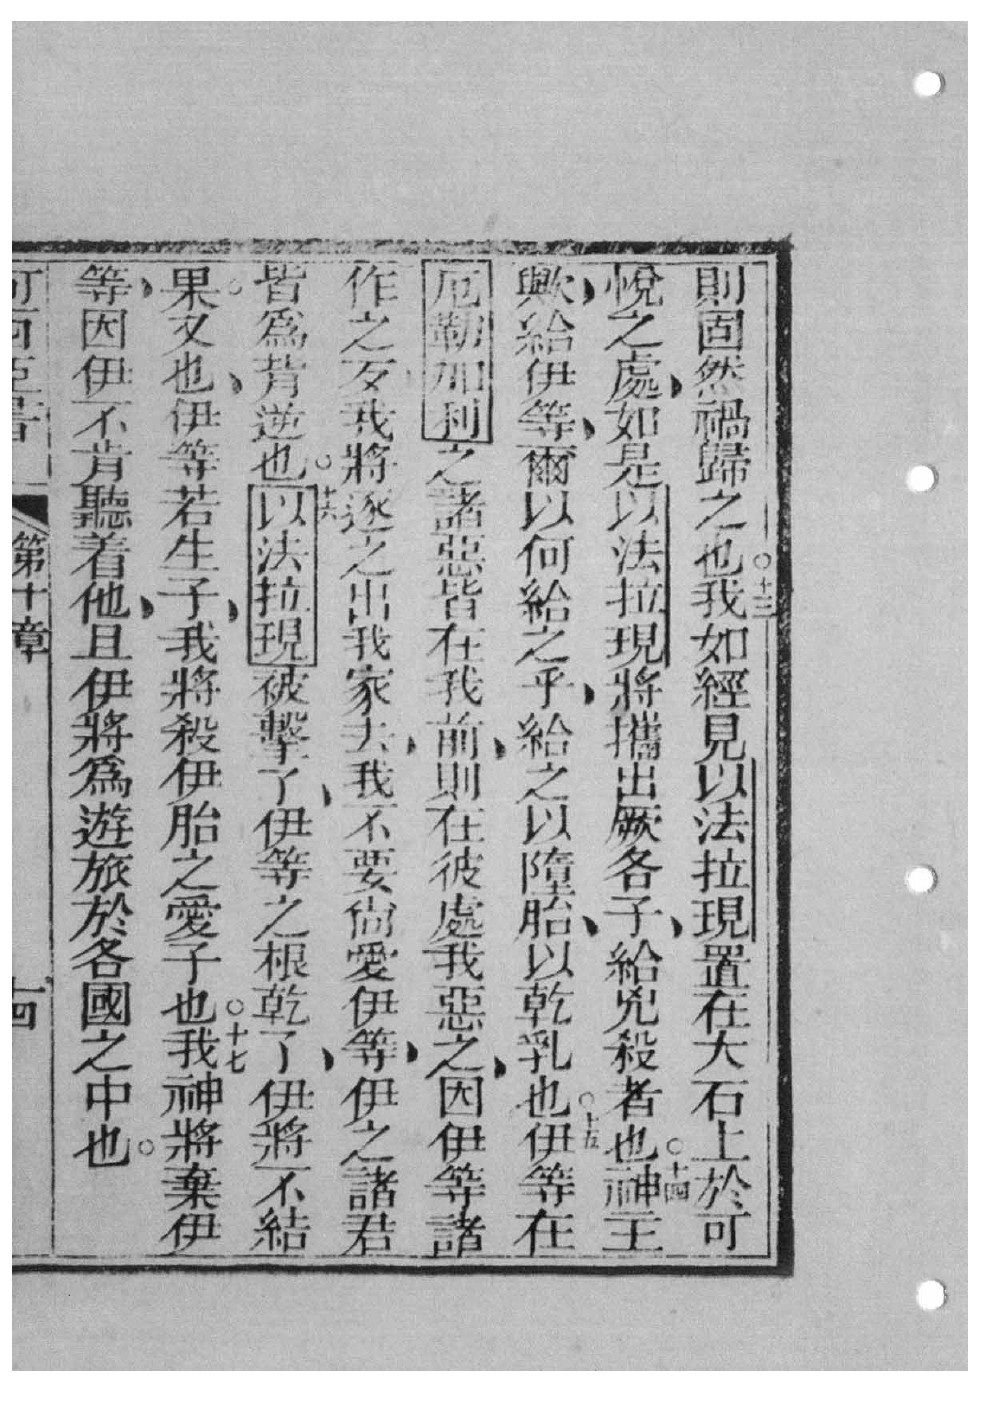 則固然禍歸之也○十三我如經見以法拉現置在大石上於可
悅之處如是以法拉現將攜出厥各子給兇殺者也○十四神王
歟給伊等爾以何給之乎給之以墮胎以乾乳也○十五伊等在
厄勒加利之諸惡皆在我前則在彼處我惡之因伊等諸
作之歹我將逐之出我家去我不要尙愛伊等伊之諸君
皆爲背逆也○十六以法拉現被擊了伊等之根乾了伊將不結
果○又也伊等若生子我將殺伊胎之愛子也○十七我神將棄伊
等因伊不肯聽着他且伊將爲遊旅於各國之中也○
第十章